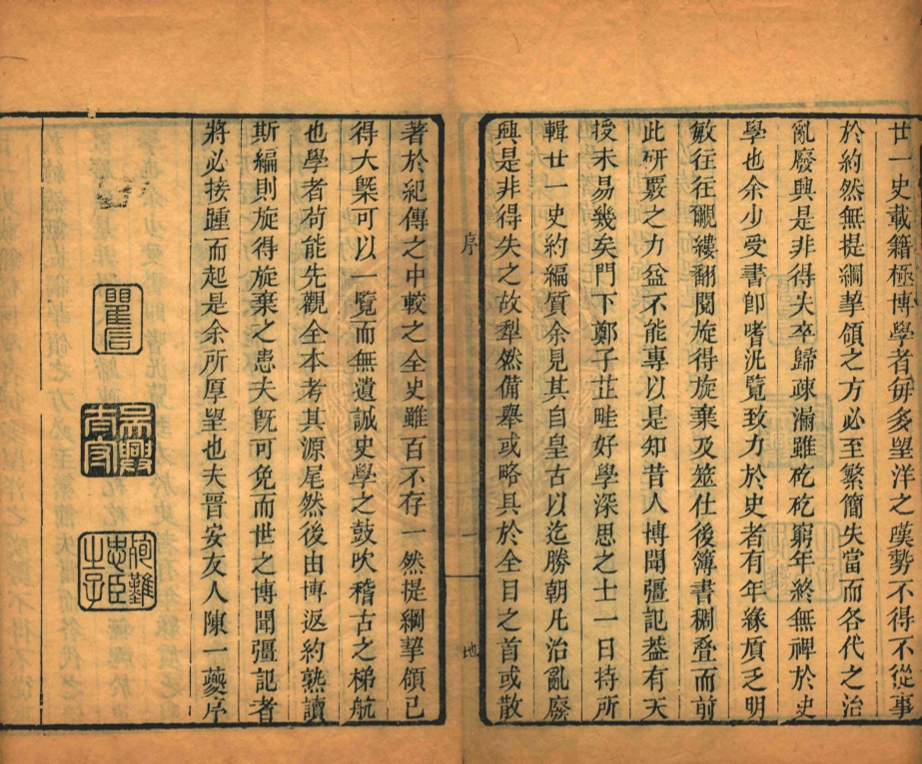 廿一史載籍極博學者每多望洋之嘆勢不得不從事
於約然無提綱挈領之方必至繁簡失當而各代之治
亂廢興是非得失卒歸疎漏雖矻矻窮年終無裨於史
學也余少受書卽嗜汎覽致力於史者有年緣質乏明
敏往往覼縷翻閱旋得旋棄及筮仕後簿書稠疊而前
此研覈之力益不能專以是知昔人博聞彊記葢有天
授未易幾矣門下鄭子芷畦好學深思之士一日持所
輯廿一史約編質余見其自皇古以迄勝朝凡治亂廢
興是非得失之故犁然備舉或略具於全目之首或散
序
一
地
著於紀傳之中較之全史雖百不存一然提綱挈領已
得大槩可以一覽而無遺誠史學之鼓吹稽古之梯航
也學者苟能先觀全本考其源尾然後由博返約熟讀
斯編則旋得旋棄之患夫旣可免而世之博聞彊記者
將必接踵而起是余所厚望也夫晉安友人陳一夔序
吳興
忠臣
之子